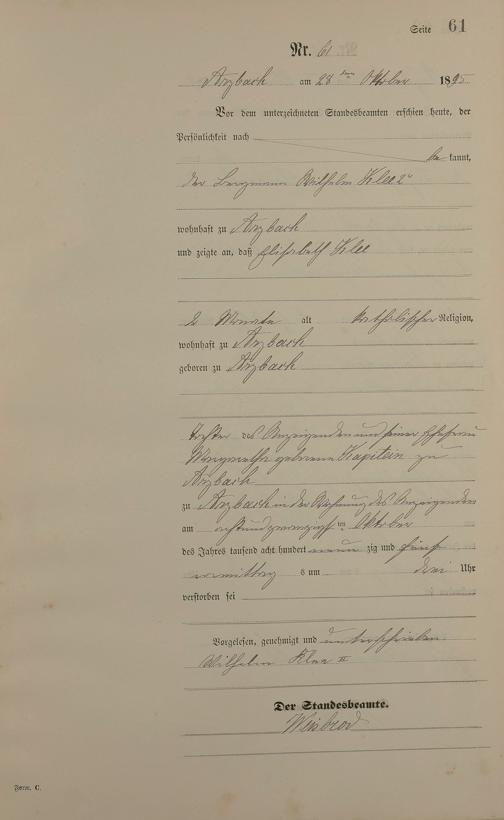 Seite 61
Nr. 61
Arzbach am 28ten Oktober 1895
Vor dem unterzeichneten Standesbeamten erschien heute, der
Persönlichkeit nach
be kannt,
der Bergmann Wilhelm Klee 2r
wohnhaft zu Arzbach
und zeigte an, daß Elisabeth Klee
2 Monate alt katholischer Religion,
wohnhaft zu Arzbach
geboren zu Arzbach
Tochter des Anzeigenden und seiner Ehefrau
Margaretha geborene Kapitein zu
Arzbach
zu Arzbach in der Wohnung des Anzeigenden
am achtundzwanzigsten Oktober
des Jahres tausend acht hundert neun zig und fünf
vormittag s um drei Uhr
verstorben sei
Vorgelesen, genehmigt und unterschrieben.
Wilhelm Klee II
Der Standesbeamte.
Weisbrod
Form. C.